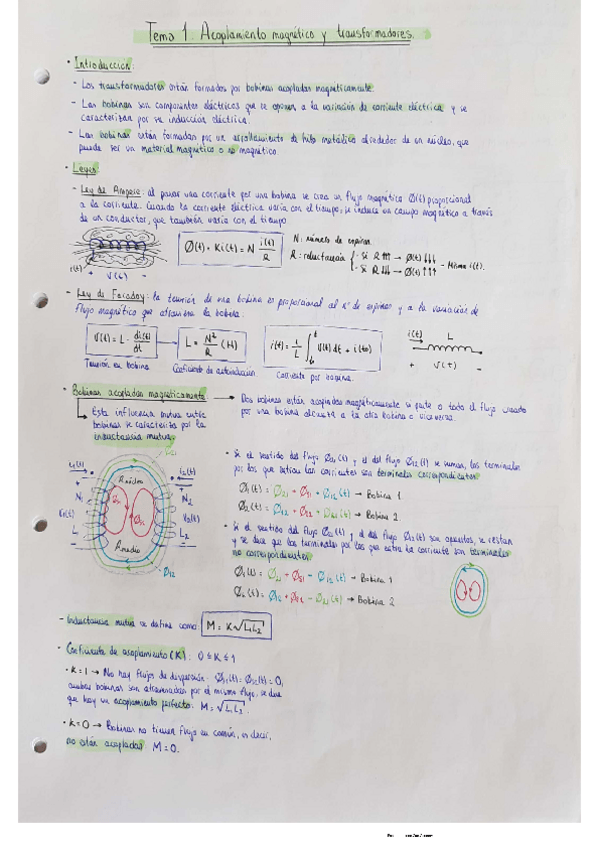 Tema 1. Acoplamiento magnético y transformadores.
• Introducción:
- Los transformadores están formados por bobinas acopladas magnéticamente.
- Las bobinas son componentes eléctricos que se oponen a la variación de corriente eléctrica y se
caracterizan por su inducción eléctrica.
- Las bobinas están formadas por un arrollamiento de hilo metálico alrededor de un núcleo, que
puede ser un material magnético o no magnético.
• Leyes:
- Ley de Ampere: al pasar una corriente por una bobina se crea un flujo magnético Ø(t) proporcional
a la corriente. Cuando la corriente eléctrica varía con el tiempo, se induce un campo magnético a través
de un conductor, que también varía con el tiempo.
i(t) + V(t) -
Ø(t) = K i(t) = N i(t)/R
N: número de espiras
R: reluctancia
· Si R↑↑ → Ø(t)↓↓↓
· Si R↓↓ → Ø(t)↑↑↑
- Misma i(t).
- Ley de Faraday: la tensión de una bobina es proporcional al nº de espiras y a la variación de
flujo magnético que atraviesa la bobina.
V(t) = L · di(t)/dt → L = N²/R (H)
Tensión en bobina
Coeficiente de autoinducción
Corriente por bobina
i(t) L
+ V(t) -
• Bobinas acopladas magnéticamente: → Dos bobinas están acopladas magnéticamente si parte o todo el flujo creado
por una bobina afecta a la otra bobina o viceversa.
Esta influencia mutua entre
bobinas se caracteriza por la
inductancia mutua.
i₁(t) i₂(t)
Núcleo
N₁ N₂
L₂
Ø₁₂
· Si el sentido del flujo Ø₁₂(t) y el del flujo Ø₂₁(t) se suman, los terminales
por los que entran las corrientes son terminales correspondientes.
Ø₁(t) = Ø₂₁ + Ø₁₁ + Ø₁₂(t) → Bobina 1.
→ Bobina 2.
y se dice que los terminales por los que entra la corriente son terminales
no correspondientes.
→ Bobina 1
→ Bobina 2
- Inductancia mutua se define como: M = K√L₁L₂
- Coeficiente de acoplamiento (K): 0 ≤ K ≤ 1
· K = 1 → No hay flujos de dispersión.
ambas bobinas son atravesadas por el mismo flujo, se dice
que hay un acoplamiento perfecto: M = √L₁L₂.
· K = 0 → Bobinas no tienen flujo en común, es decir,
no están acopladas. M = 0.